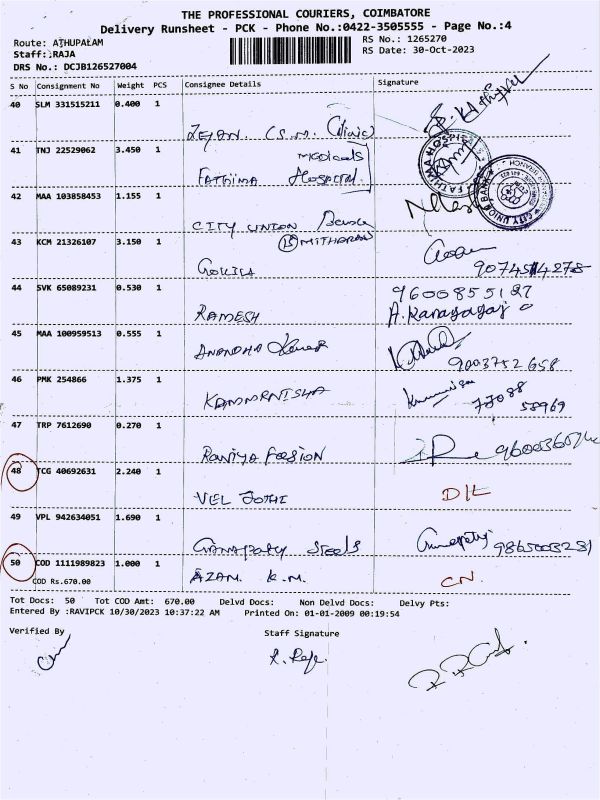 THE PROFESSIONAL COURIERS, COIMBATORE
Delivery Runsheet - PCK - Phone No.:0422-3505555 - Page No.:4
Route: ATHUPALAM
Staff: RAJA
DRS No.: DCJB126527004
RS No.: 1265270
RS Date: 30-Oct-2023
S No Consignment No Weight PCS Consignee Details Signature
40 SLM 331515211 0.400 1
(S.M. Clinic)
41 TNJ 22529062 3.450 1
medicals
FATHIMA Hospital
FATHIMA HOSPITAL
42 MAA 103858453 1.155 1
CITY UNION Bank
CITY UNION BANK
43 KCM 21326107 3.150 1
MITHRAN
GOKILA
44 SVK 65089231 0.530 1
9600855127
RAMESH A. Kanagaraj
45 MAA 100959513 0.555 1
ANANDHA Kumar 9003752658
46 PMK 254866 1.375 1
KAMMRNISHA 77088
58969
47 TRP 7612690 0.270 1
RANIYA FASION
48 TCG 40692631 2.240 1
VEL JOTHI D/L
49 VPL 942634051 1.690 1
GANAPATHY Steels Ganapathy 9865003231
50 COD 1111989823 1.000 1
COD Rs.670.00
AZAM. K.M. CN.
Tot Docs: 50 Tot COD Amt: 670.00 Delvd Docs: Non Delvd Docs: Delvy Pts:
Entered By :RAVIPCK 10/30/2023 10:37:22 AM Printed On: 01-01-2009 00:19:54
Verified By Staff Signature